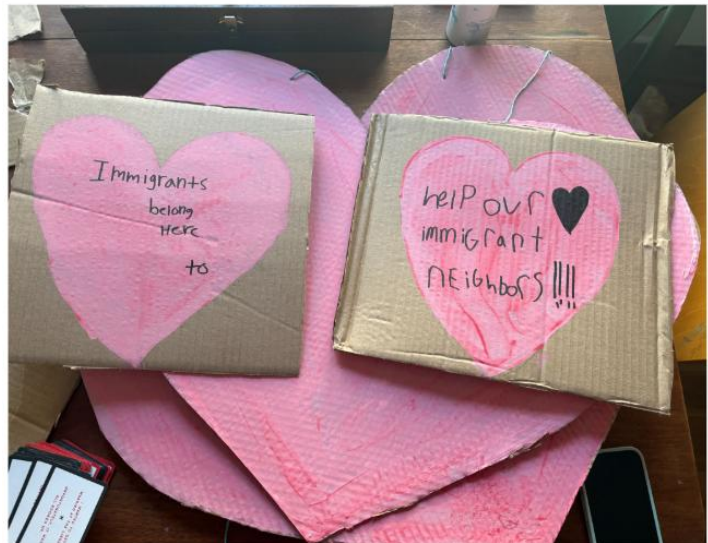 Immigrants
belong
Here
to
help our
immigrant
neighbors!!!!